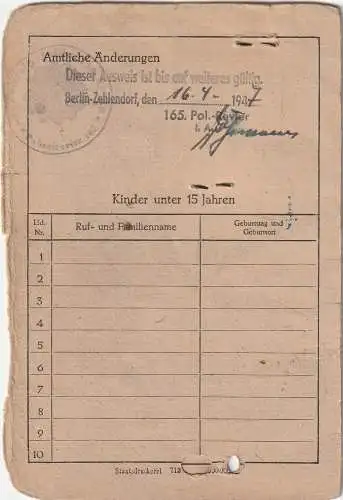 Amtliche Änderungen
Dieser Ausweis ist bis auf weiteres gültig.
Berlin-Zehlendorf, den 16-4- 1947
165. Pol.-Revier
Kinder unter 15 Jahren
Lfd. Nr. Ruf- und Familienname Geburtstag und Geburtsort
1
2
3
4
5
6
7
8
9
10
Staatsdruckerei 713